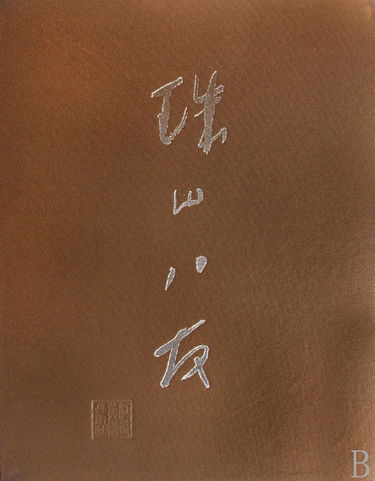 珠山八友
B